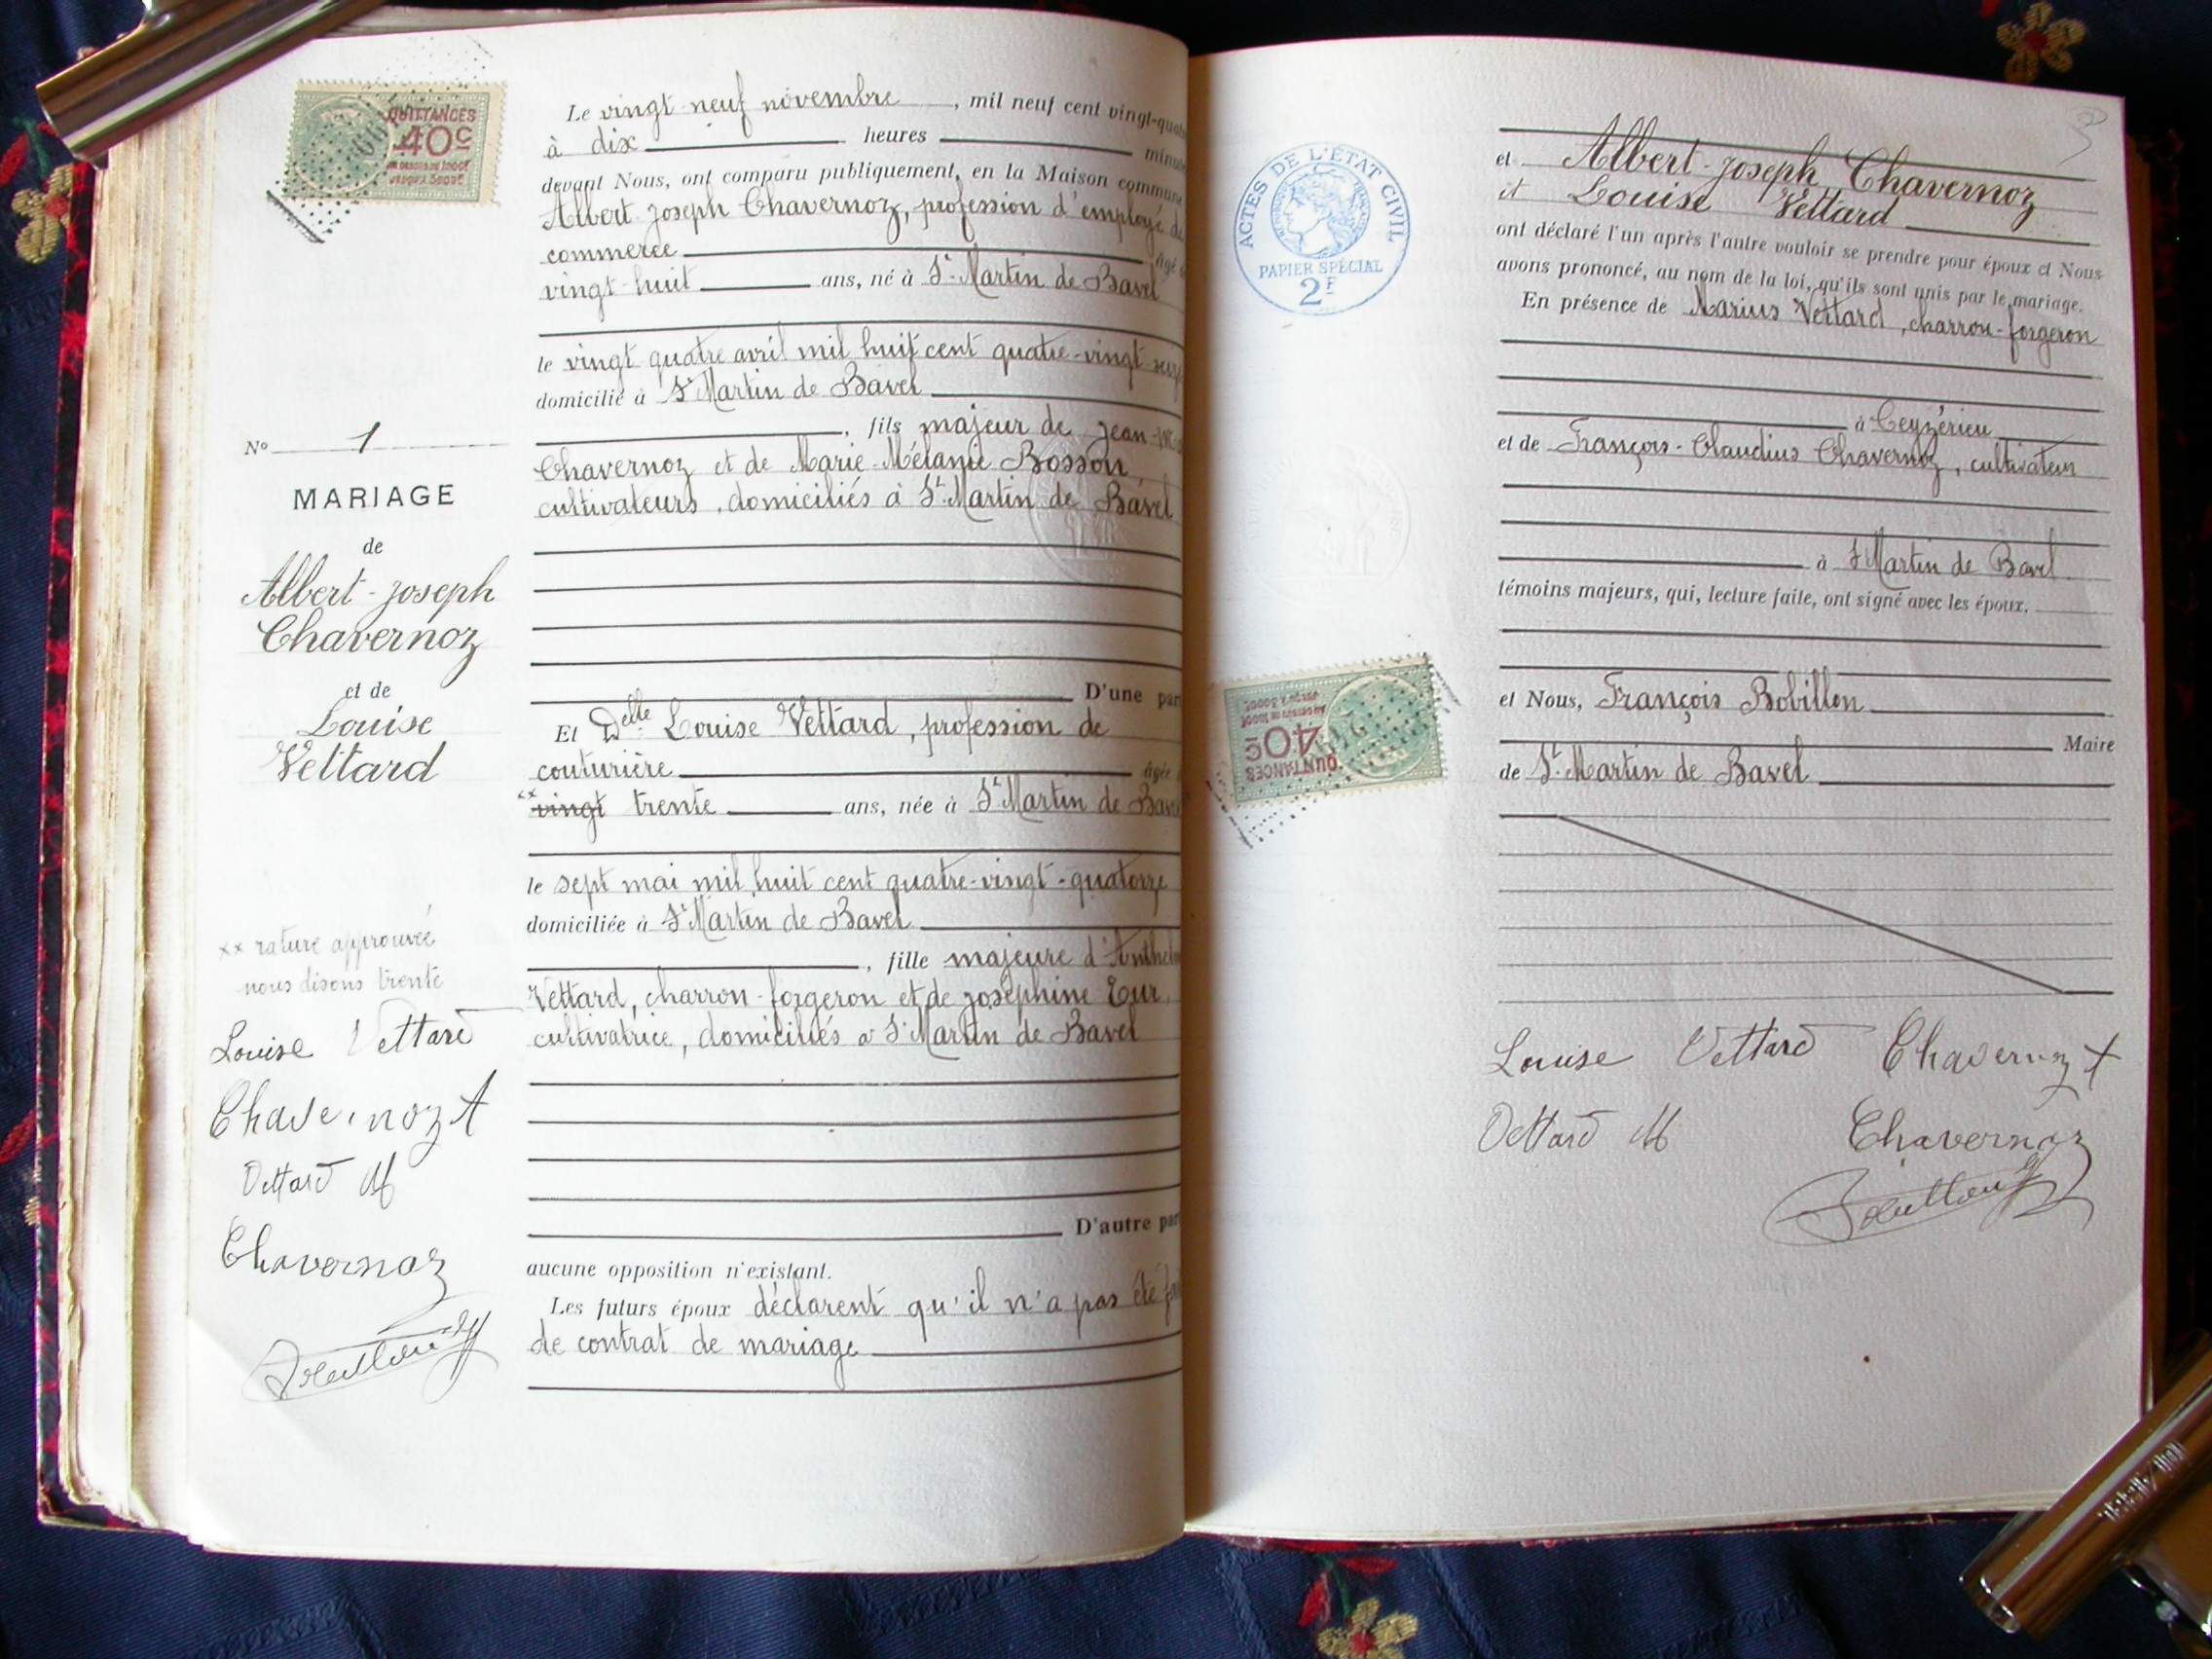 QUITTANCES
40c
Le vingt-neuf novembre, mil neuf cent vingt-quat
à dix heures minute
devant Nous, ont comparu publiquement, en la Maison commune
Albert-Joseph Chavernoz, profession d'employé de
commerce âgé
vingt-huit ans, né à St Martin de Bavel
le vingt quatre avril mil huit cent quatre-vingt-seize
domicilié à St Martin de Bavel
, fils majeur de Jean-
Chavernoz et de Marie-Mélanie Bosson
cultivateurs, domiciliés à St Martin de Bavel
D'une par
No 1
MARIAGE
de
Albert-Joseph
Chavernoz
et de
Louise
Vettard
Et Delle Louise Vettard, profession de
couturière âgée
xx vingt trente ans, née à St Martin de Bavel
le sept mai mil huit cent quatre-vingt-quatorze
domiciliée à St Martin de Bavel
, fille majeure d'Anthelm
Vettard, charron-forgeron et de Joséphine Eur
cultivatrice, domiciliés à St Martin de Bavel
D'autre par
xx rature approuvée
nous disons trente
Louise Vettard
Chavernoz A
Vettard M
Chavernoz
aucune opposition n'existant.
Les futurs époux déclarent qu'il n'a pas été fai
de contrat de mariage
ACTES DE L'ÉTAT CIVIL
PAPIER SPÉCIAL
2F
3
et Albert-Joseph Chavernoz
et Louise Vettard
ont déclaré l'un après l'autre vouloir se prendre pour époux et Nous
avons prononcé, au nom de la loi, qu'ils sont unis par le mariage.
En présence de Marius Vettard, charron-forgeron
à Ceyzérieu
et de François-Claudius Chavernoz, cultivateur
à St Martin de Bavel
témoins majeurs, qui, lecture faite, ont signé avec les époux.
QUITTANCES
40c
et Nous, François Bobillon
Maire
de St Martin de Bavel
Louise Vettard Chavernoz A
Vettard M Chavernoz